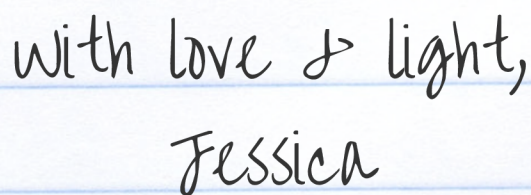 with love & light,
Jessica